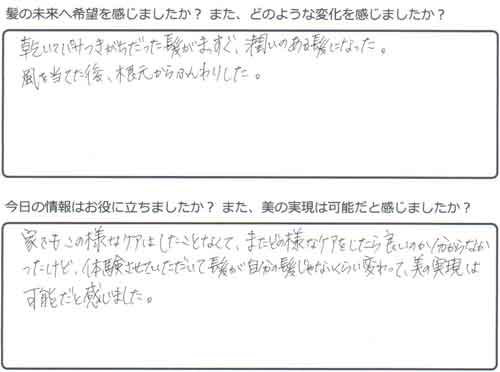 髪の未来へ希望を感じましたか？ また、どのような変化を感じましたか？
乾いてパサつきがちだった髪がまっすぐ、潤いのある髪になった。
風を当てた後、根元からふんわりした。
今日の情報はお役に立ちましたか？ また、美の実現は可能だと感じましたか？
家でもこの様なケアはしたことなくて、またどの様なケアをしたら良いのか分からなか
ったけど、体験させていただいて髪が自分の髪じゃないくらい変わって、美の実現は
可能だと感じました。